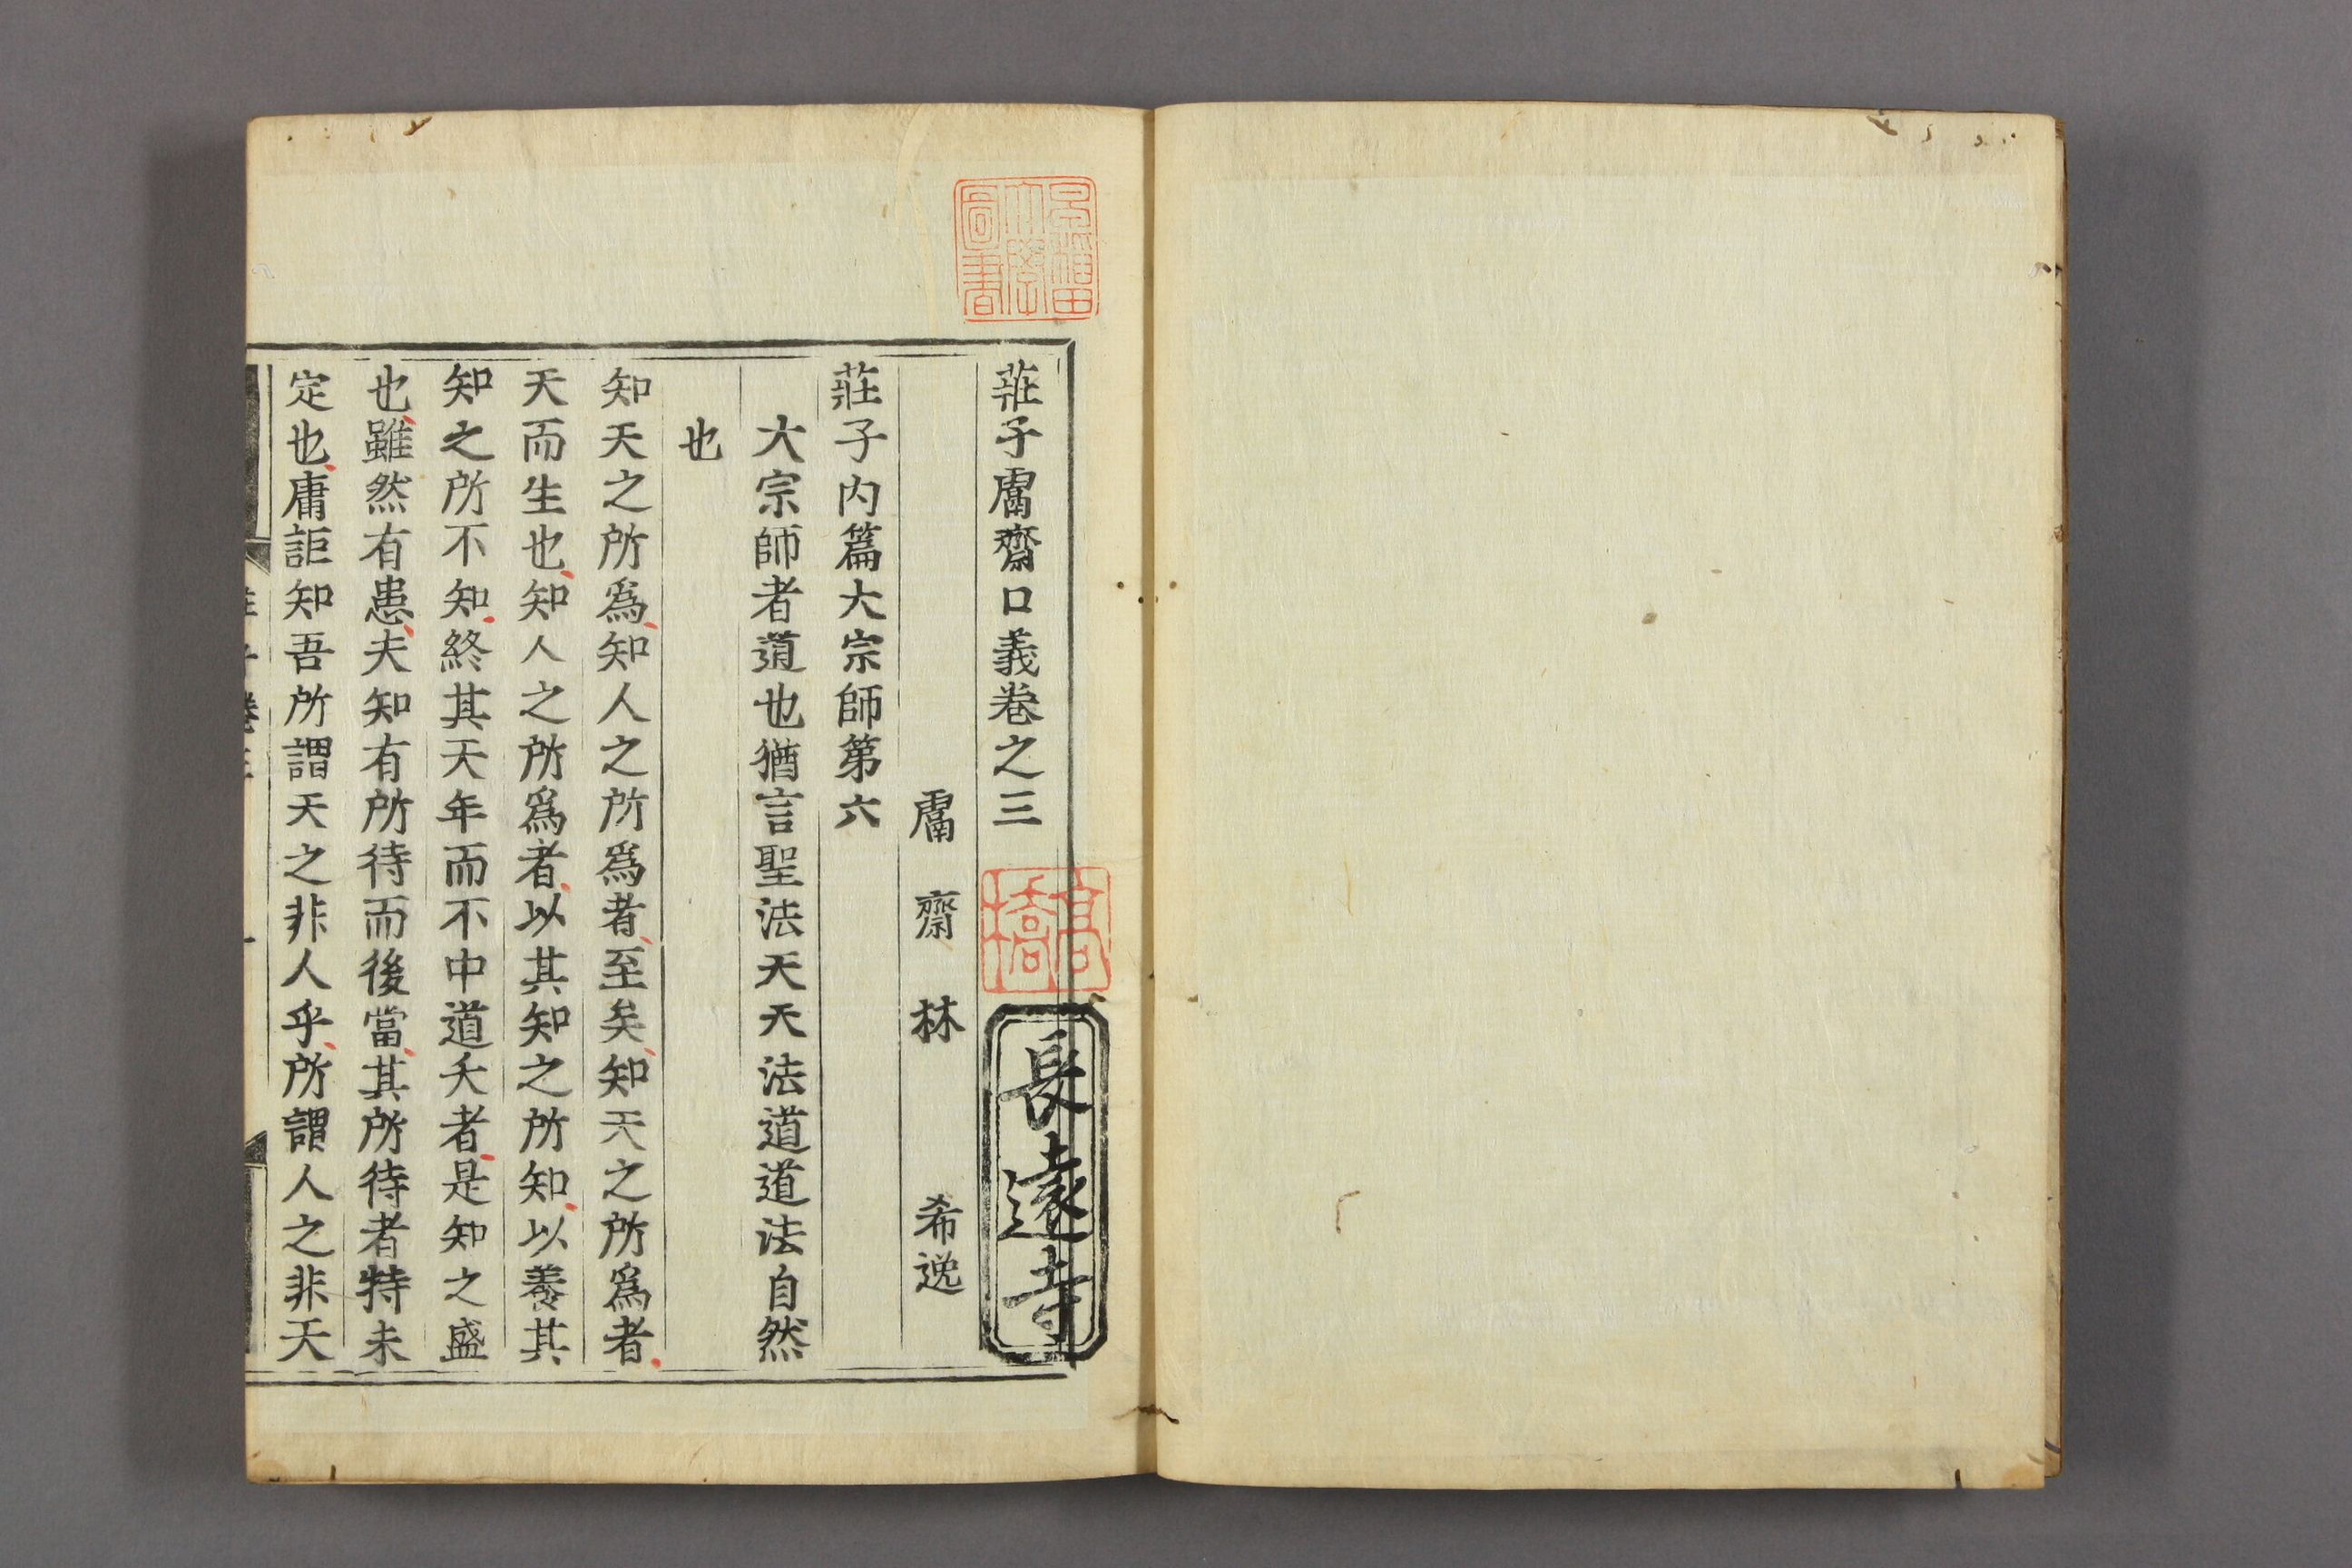 早稲田
大學
圖書
莊子鬳齋口義卷之三
高橋
長遠寺
鬳齋林希逸
莊子内篇大宗師第六
大宗師者道也猶言聖法天天法道道法自然
也
知天之所爲知人之所爲者至矣知天之所爲者
天而生也知人之所爲者以其知之所知以養其
知之所不知終其天年而不中道夭者是知之盛
也雖然有患夫知有所待而後當其所待者特未
定也庸詎知吾所謂天之非人乎所謂人之非天